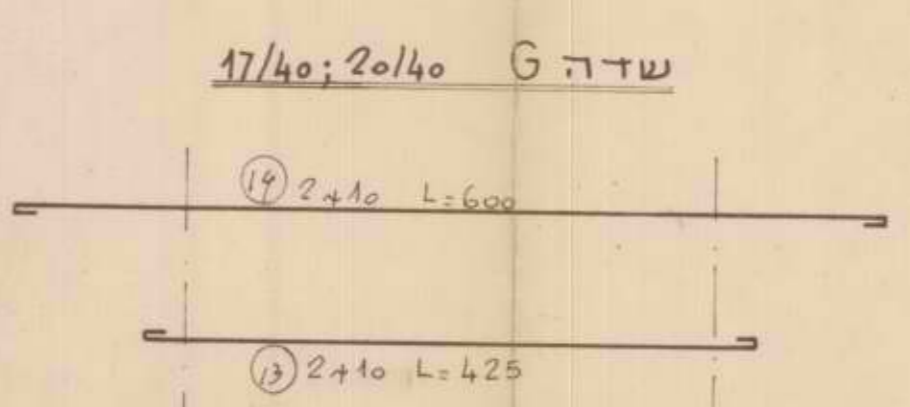 17/40; 20/40 שדה G
14 2+10 L=600
13 2+10 L=425